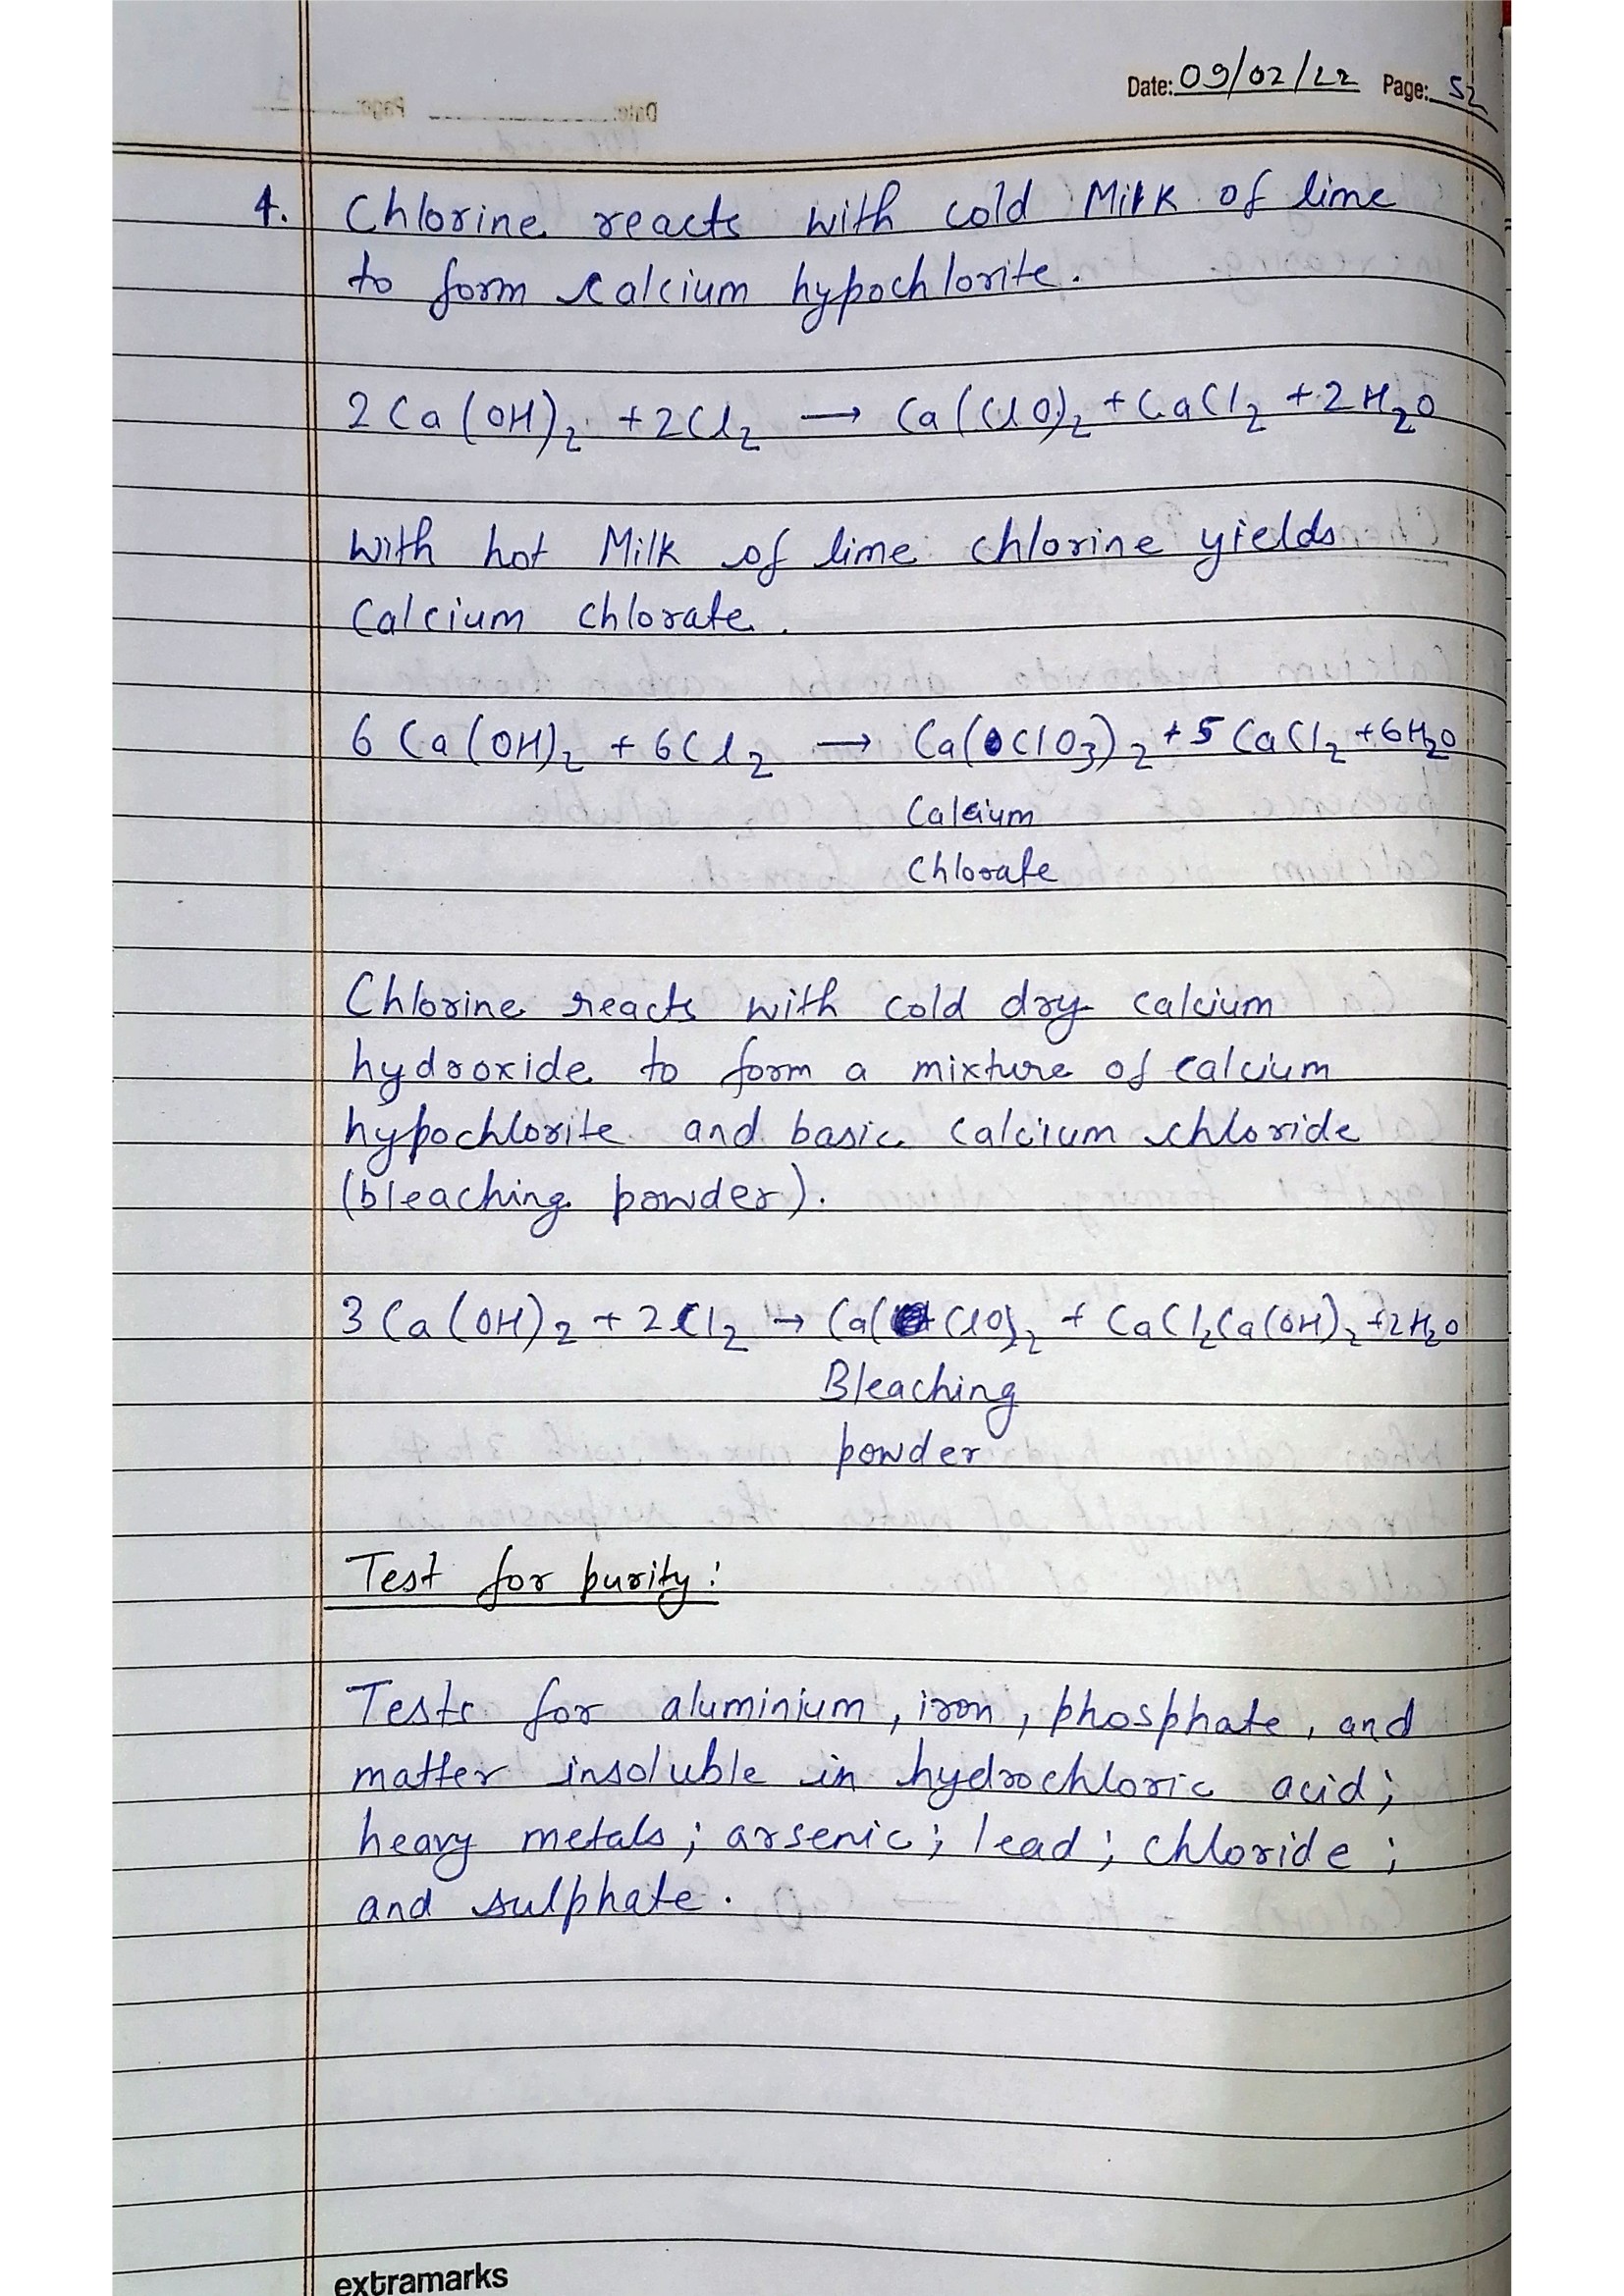 Date: 09/02/22 Page: 52
4. Chlorine reacts with cold Milk of lime
to form calcium hypochlorite.
2Ca(OH)₂ + 2Cl₂ → Ca(ClO)₂ + CaCl₂ + 2H₂O
With hot Milk of lime chlorine yields
Calcium chlorate.
6Ca(OH)₂ + 6Cl₂ → Ca(ClO₃)₂ + 5CaCl₂ + 6H₂O
Calcium
Chlorate
Chlorine reacts with cold dry calcium
hydroxide to form a mixture of calcium
hypochlorite and basic calcium chloride
(bleaching powder).
3Ca(OH)₂ + 2Cl₂ → Ca(ClO)₂ + CaCl₂Ca(OH)₂ + 2H₂O
Bleaching
powder
Test for purity:
Tests for aluminium, iron, phosphate, and
matter insoluble in hydrochloric acid;
heavy metals; arsenic; lead; chloride;
and sulphate.
extramarks